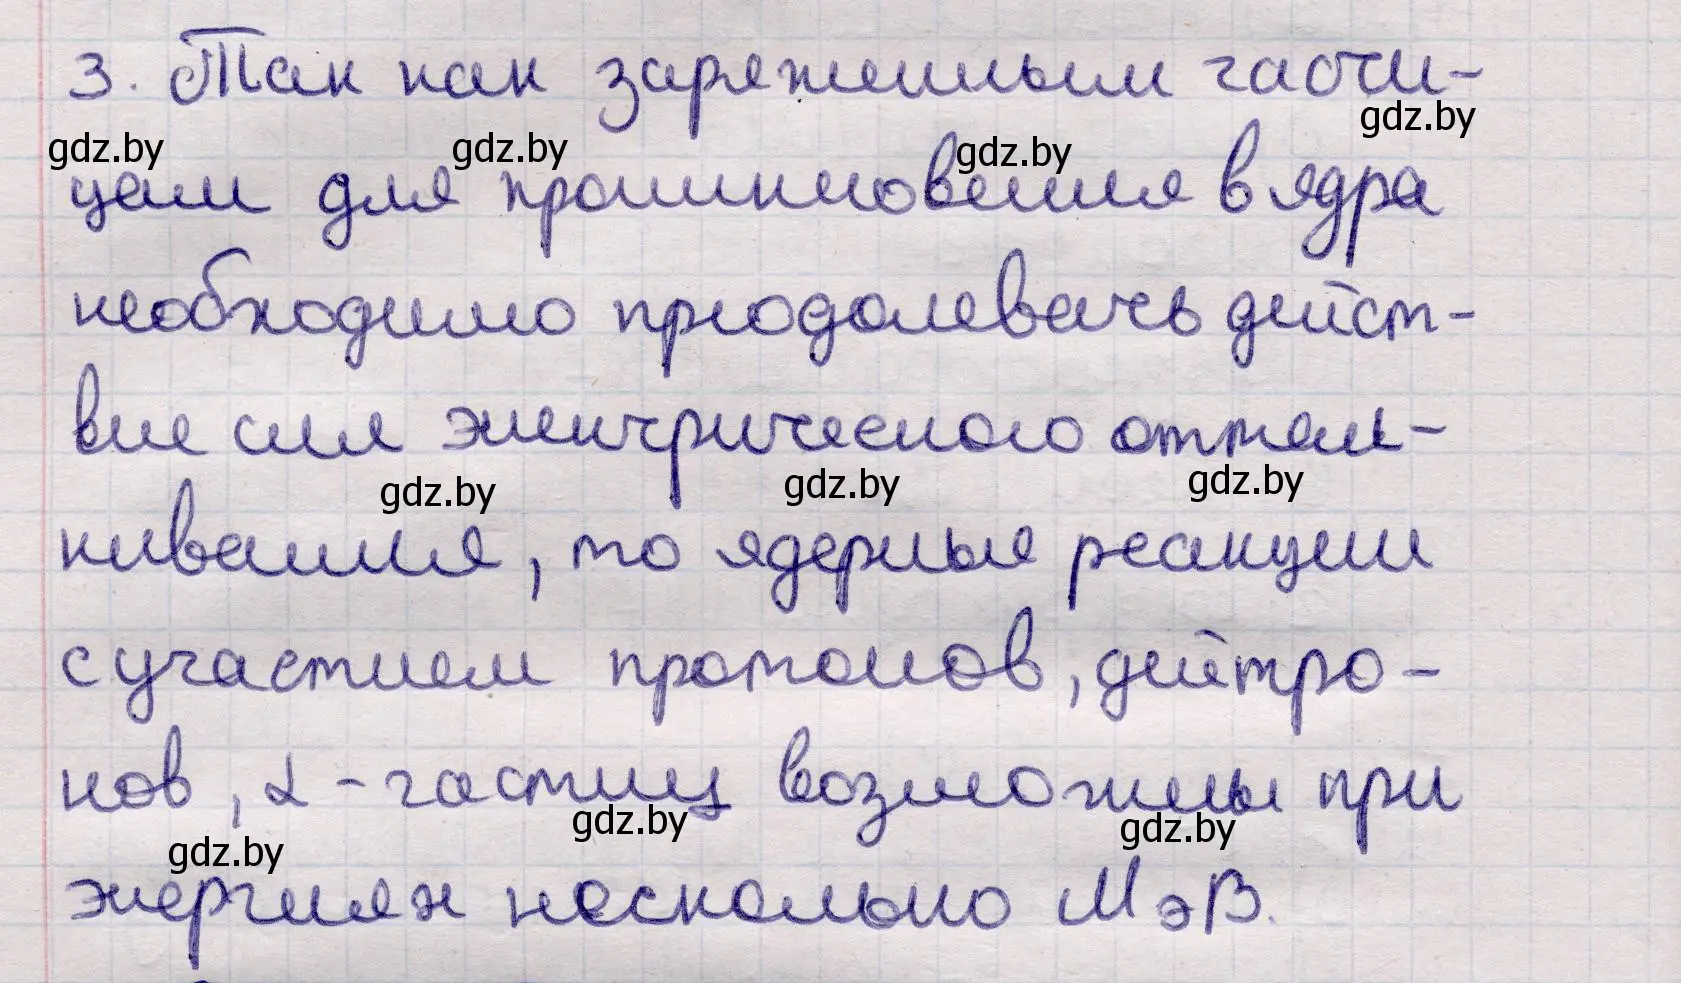 3. Так как заряженным части-
gdz.by
gdz.by gdz.by gdz.by
цам для проникновения в ядра
необходимо приодолевать дейст-
вие сил электрического отталь-
gdz.by gdz.by gdz.by
кивания, то ядерные реакции
с участием протонов, дейтро-
нов, α-частиц возможны при
gdz.by gdz.by gdz.by
энергиях несколько МэВ.